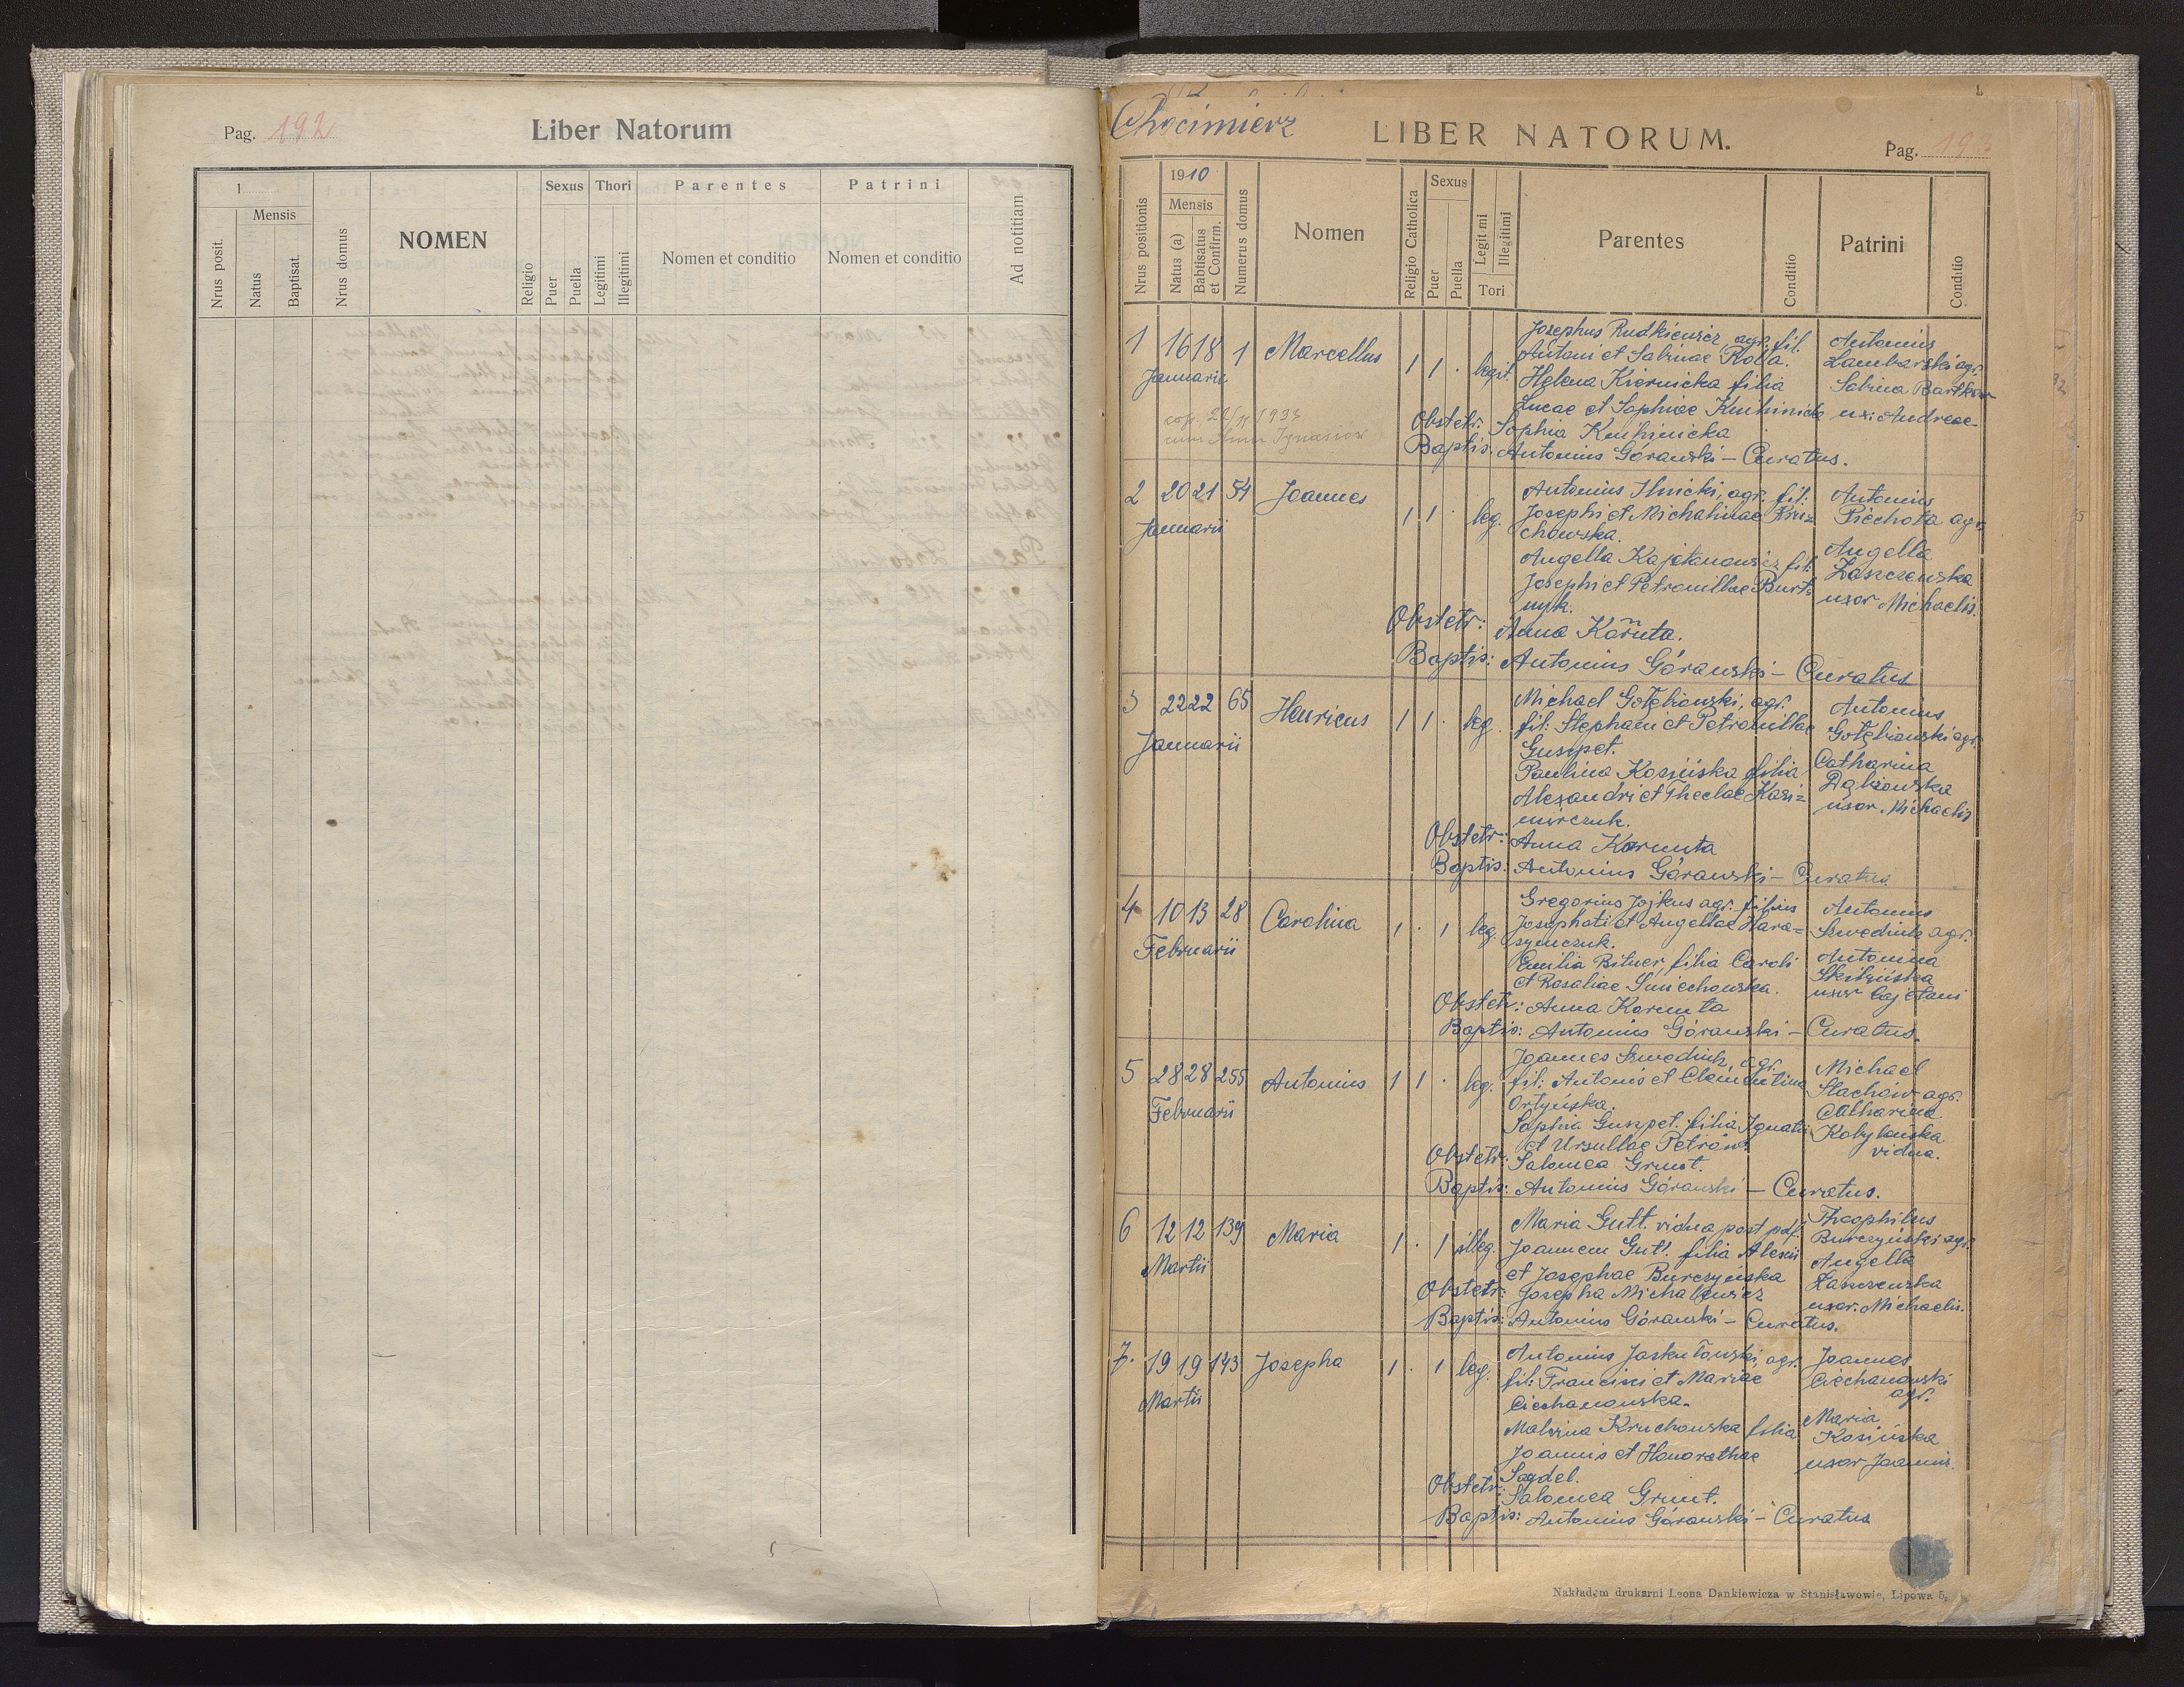 Pag. 192
Liber Natorum
1
Mensis
Nrus posit.
Natus
Baptisat.
Nrus domus
NOMEN
Religio
Sexus
Puer
Puella
Thori
Legitimi
Illegitimi
Parentes
Nomen et conditio
Patrini
Nomen et conditio
Ad notitiam
Chocimierz
LIBER NATORUM.
Pag. 19
Nrus positionis
1910
Mensis
Natus (a)
Babtisatus et Confirm.
Numerus domus
Nomen
Religio Catholica
Sexus
Puer
Puella
Legitimi
Illegitimi
Tori
Parentes
Conditio
Patrini
Conditio
1 16 18 1 Marcellus 1 1 · legit.
Januarii
Josephus Rudkiewicz agr. fil.
Antoni et Sabinae Rolla.
Helena Kiernicka filia
Lucae et Sophiae Kuchinick
Antonius
Lambarski agr.
Sabina Bartkow
ux: Andreae
cop. 1933
cum Anna Ignasiow
Obstetr: Sophia Kuchinicka
Baptis: Antonius Górawski – Curatus.
2 20 21 54 Joannes 1 1 · leg.
Januarii
Antonius Ilnicki, agr. fil:
Josephi et Michalinae Kru=
chowska.
Angella Kajetanowicz fil:
Josephi et Petronillae Burt
nyk.
Antonius
Piechota agr.
Angella
Łaszczewska
uxor Michaelis
Obstetr: Anna Kormuta.
Baptis: Antonius Górawski – Curatus
3 22 22 65 Henricus 1 1 · leg.
Januarii
Michael Gołębiowski, agr.
fil: Stephani et Petronillae
Guszpet.
Paulina Kosińska filia
Alexandri et Theclae Kazi=
mirczuk.
Antonius
Gołębiowski agr.
Catharina
Dąbrowska
uxor. Michaelis
Obstetr: Anna Kormuta
Baptis: Antonius Górawski – Curatus
4 10 13 28 Carolina 1 · 1 leg.
Februarii
Gregorius Jojkus agr. filius
Josephati et Angellae Hara=
symczuk.
Emilia Bitner, filia Caroli
et Rosaliae Śmiechowska.
Antonius
Szwediuk agr.
Antonina
uxor Cajetani
Obstetr: Anna Kormuta
Baptis: Antonius Górawski – Curatus.
5 28 28 255 Antonius 1 1 · leg.
Februarii
Joannes Szwediuk, agr.
fil: Antonis et Clementina
Ortyńska.
Sophia Guszpet. filia Ignatii
et Ursullae Petrów.
Michael
Stachów agr.
Catharina
Kobylańska
vidua.
Obstetr: Salomea Grunt.
Baptis: Antonius Górawski – Curatus.
6 12 12 139 Maria 1 · 1 illeg.
Martii
Maria Gutt. vidua post pdf.
Joannem Gutt. filia Alexii
et Josephae Burczyńska
Theophilus
Burczyński agr.
Angella
Łaszczewska
uxor. Michaelis.
Obstetr: Josepha Michalewicz
Baptis: Antonius Górawski – Curatus.
7. 19 19 143 Josepha 1 · 1 leg.
Martii
Antonius Jaskułowski, agr.
fil: Francisci et Mariae
Ciechanowska.
Malvina Kruchowska filia
Joannis et Honorathae
Sagdel.
Joannes
Ciechanowski
agr.
Maria
Kosińska
uxor Joannis.
Obstetr: Salomea Grunt.
Baptis: Antonius Górawski – Curatus
Nakładem drukarni Leona Dankiewicza w Stanisławowie, Lipowa 5,